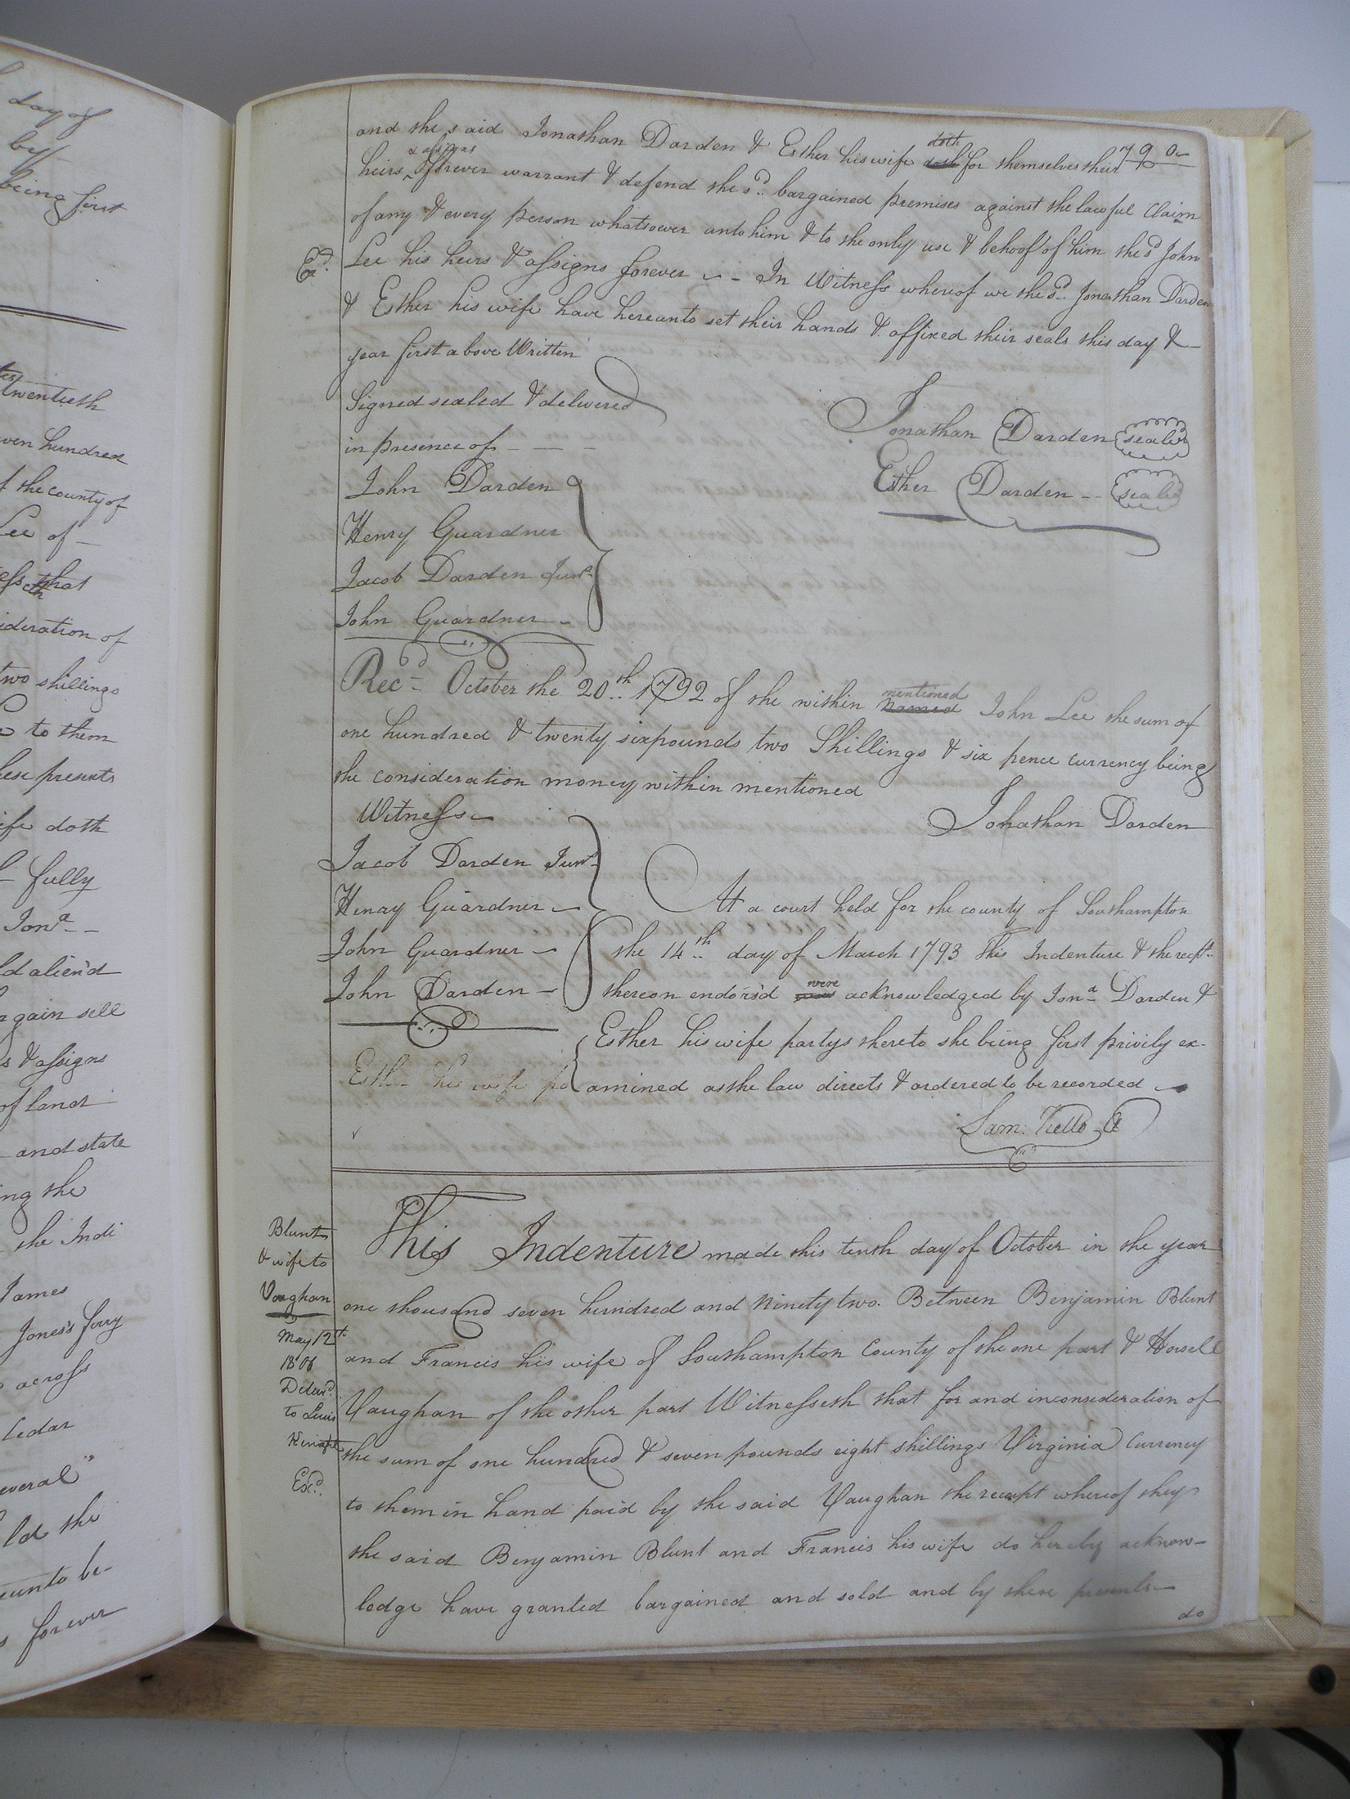 day of
by
being first
twentieth
ven hundred
f the county of
Lee of
that
ideration of
two shillings
to them
hese presents
ife doth
fully
Jona
ld aliend
rgain sell
s & assigns
of land
and state
ing the
the Indi
James
Jones's ferry
across
Cedar
everal
ld the
eunto be-
s forever
79
and the said Jonathan Darden & Esther his wife doth doth for themselves their
heirs & assigns forever warrant & defend the sd. bargained premises against the lawful claim
of any & every person whatsoever unto him & to the only use & behoof of him the sd John
Exd.
Lee his heirs & assigns forever - In Witness whereof we the sd. Jonathan Darden
& Esther his wife have hereunto set their hands & affixed their seals this day &
year first above Written
Signed sealed & delivered
in presence of
Jonathan Darden seal
Esther Darden -- seal
John Darden
Henry Guardner
Jacob Darden Junr.
John Guardner
Recd October the 20th 1792 of the within named mentioned John Lee the sum of
one hundred & twenty six pounds two Shillings & six pence currency being
the consideration money within mentioned
Witness
Jonathan Darden
Jacob Darden Junr
Henry Guardner
John Guardner
John Darden
At a court held for the county of Southampton
the 14th day of March 1793 This Indenture & the recpt.
thereon endors'd were acknowledged by Jona Darden &
Esther his wife partys thereto she being first privily ex-
Esther his wife pa
amined as the law directs & ordered to be recorded
Sam. Kello C
Blunt
& wife to
Vaughan
May 12t.
1806
Delivd.
to Lewis
Exd.
This Indenture made this tenth day of October in the year
one thousand seven hundred and Ninety two. Between Benjamin Blunt
and Francis his wife of Southampton County of the one part & Howell
Vaughan of the other part Witnesseth that for and in consideration of
the sum of one hundred & seven pounds eight shillings Virginia Currency
to them in hand paid by the said Vaughan the receipt whereof they
the said Benjamin Blunt and Francis his wife do hereby acknow-
ledge have granted bargained and sold and by these presents
do